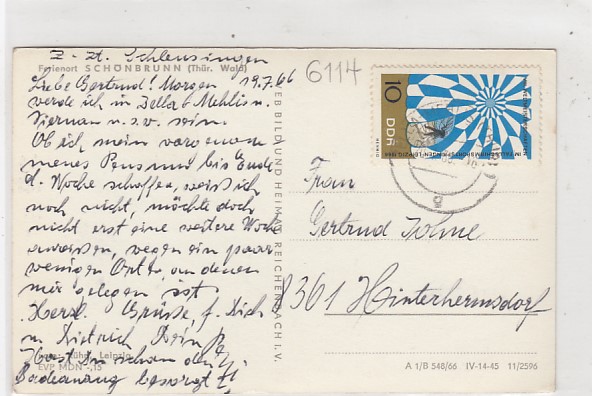 Z. Zt. Schleusingen
Ferienort SCHÖNBRUNN (Thür. Wald)
19.7.66
Liebe Gertrud! Morgen
werde ich in Zella-Mehlis u.
Viernau u.s.w. sein.
Ob ich mein vorgenom-
menes Pensum bis Ende
d. Woche schaffe, weiß ich
noch nicht, möchte doch
nicht erst eine weitere Woche
wegen ein paar
wenigen Orten, an denen
mir gelegen ist.
Herzl. Grüße f. Dich
u. Dietrich Dein
Hast Du schon den
Badeanzug besorgt?
Leipzig
EVP MDN -,15
6114
VEB BILD UND HEIMAT REICHENBACH I. V.
10
DDR
Frau
Gertrud
8361 Hinterhermsdorf
A 1/B 548/66 IV-14-45 11/2596